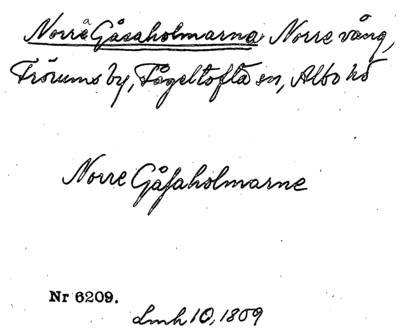 Norra Gåsaholmarna Norre vång,
Tröums by, Fågeltofta sn, Albo hd
Norre Gåsaholmarne
Nr 6209.
Lmh 10, 1809